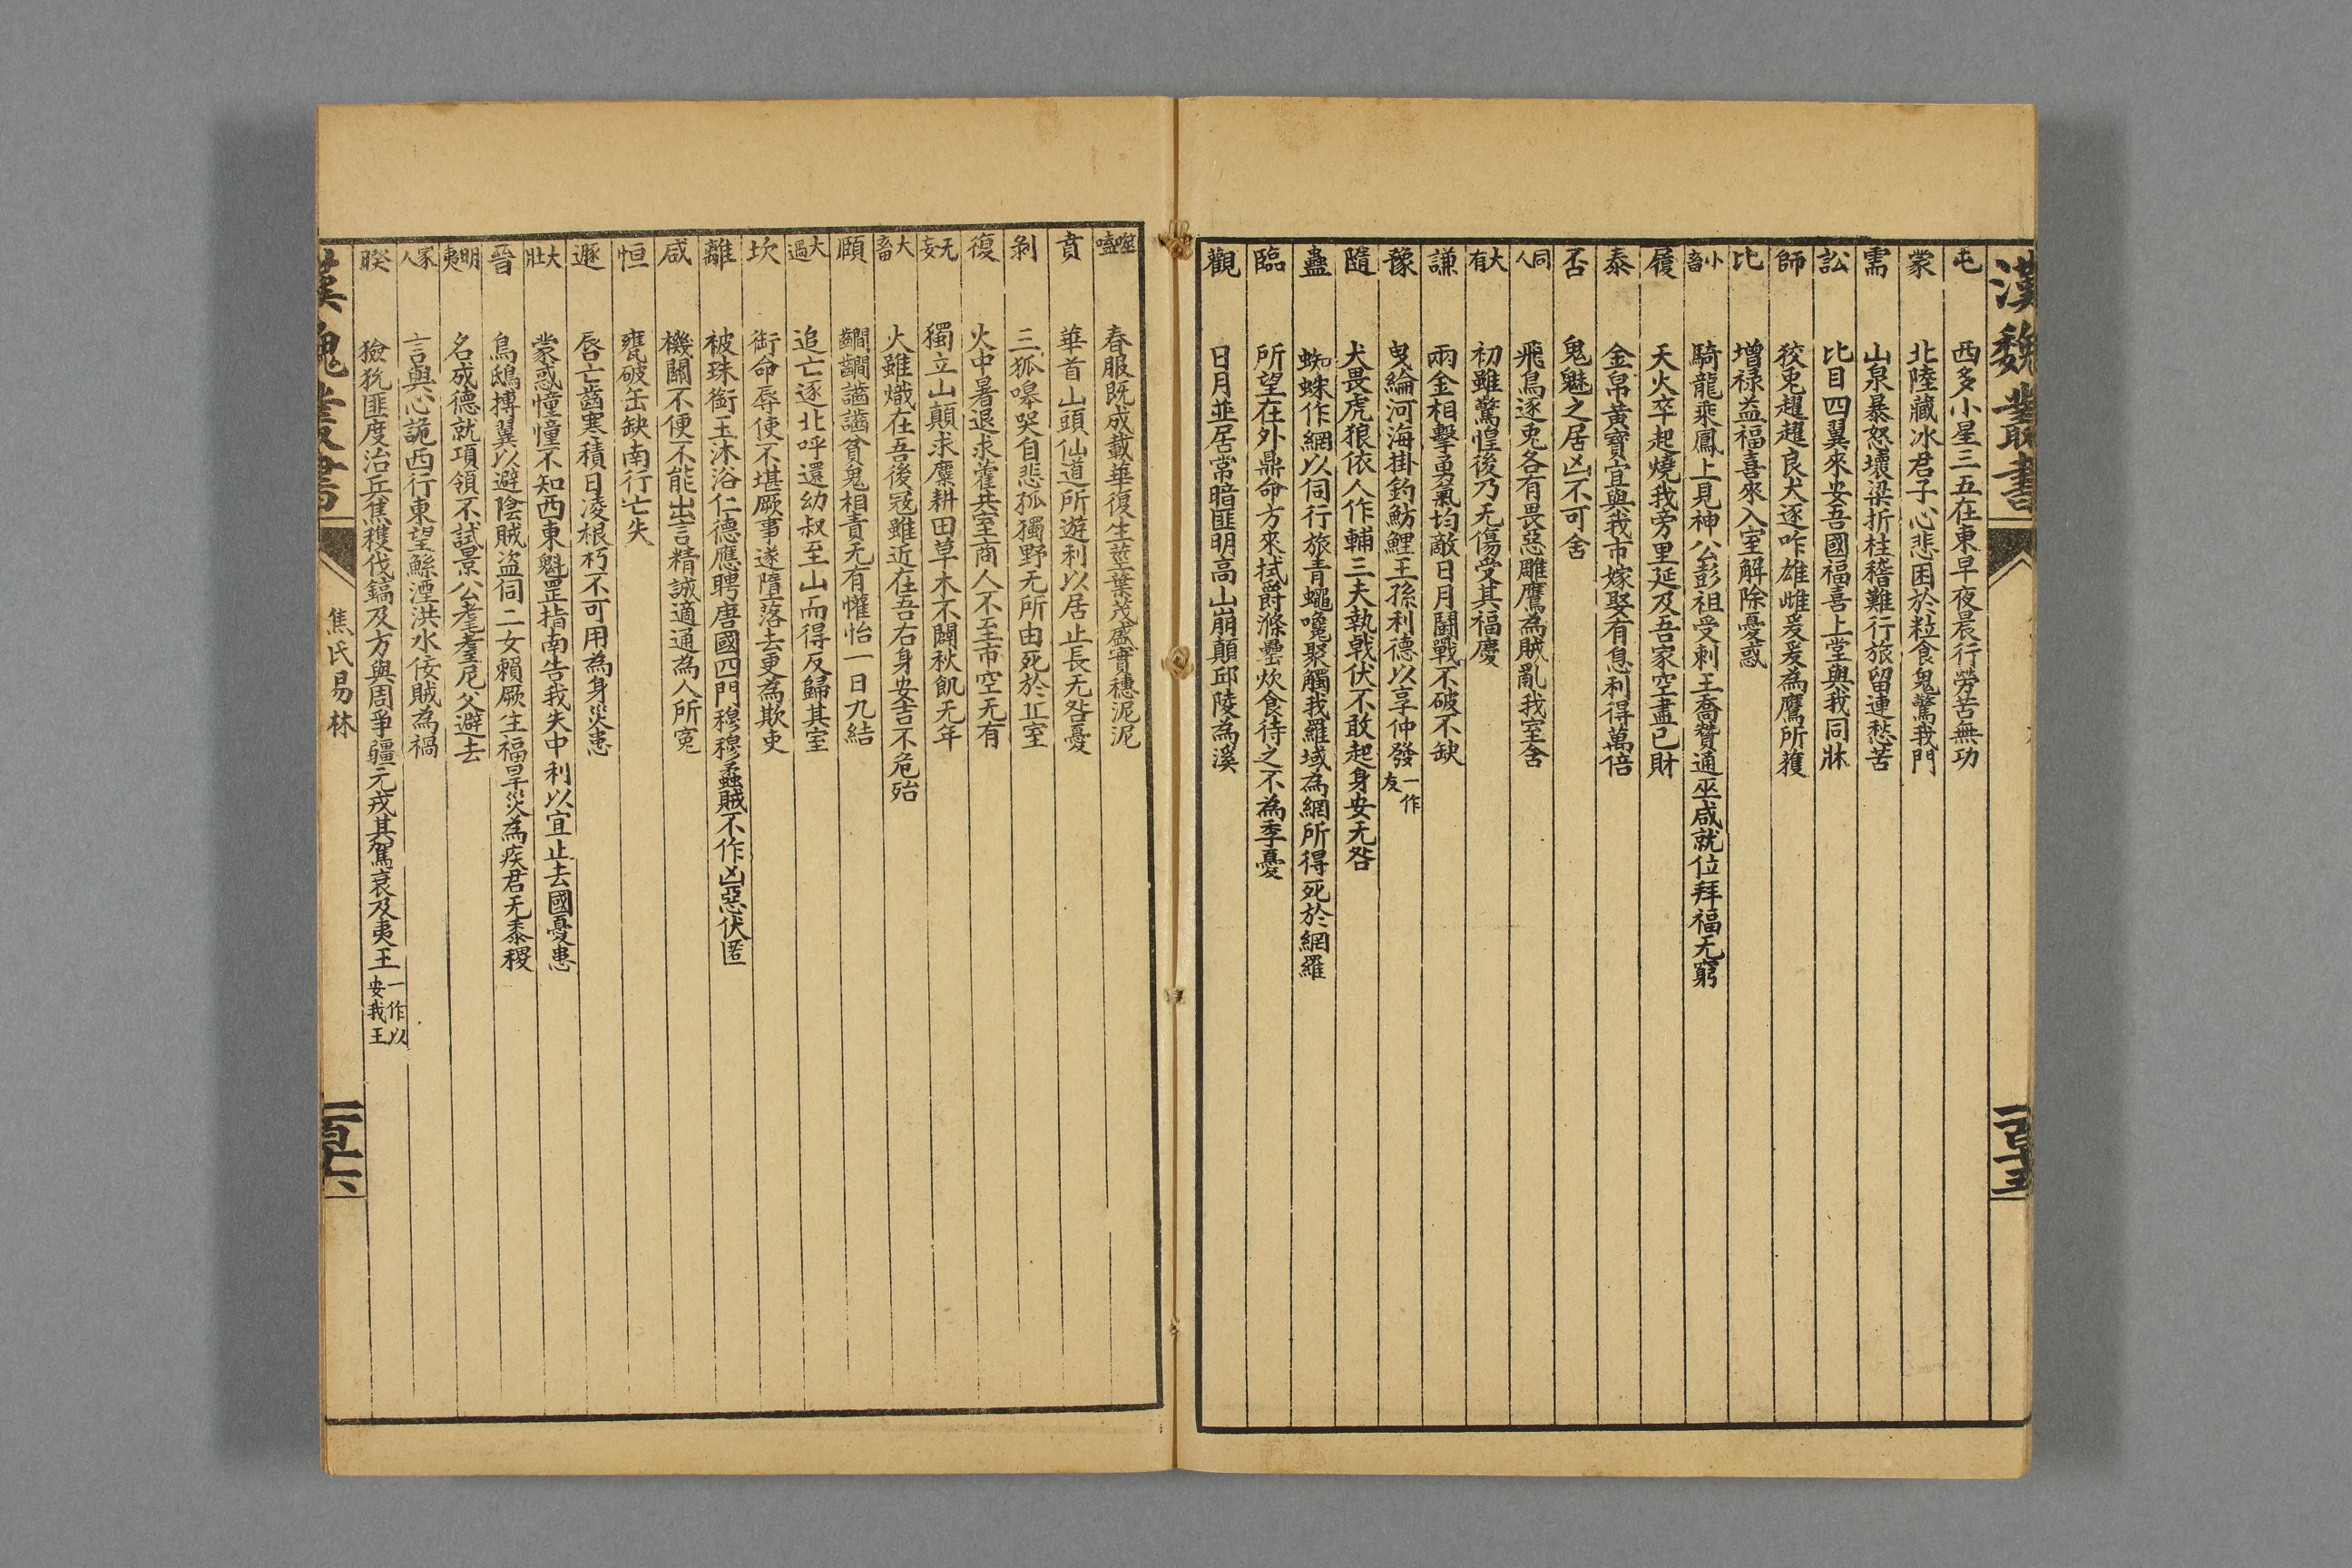 漢魏叢書
一百十五
屯 西多小星三五在東早夜晨行勞苦無功
蒙 北陸藏冰君子心悲困於粒食鬼驚我門
需 山泉暴怒壞梁折柱稽難行旅留連愁苦
訟 比目四翼來安吾國福喜上堂與我同牀
師 狡兎趯趯良犬逐咋雄雌爰爰為鷹所獲
比 增祿益福喜來入室解除憂惑
小畜 騎龍乘鳳上見神公彭祖受刺王喬贊通巫咸就位拜福无窮
履 天火卒起燒我旁里延及吾家空盡己財
泰 金帛黃寶宜與我市嫁娶有息利得萬倍
否 鬼魅之居凶不可舍
同人 飛鳥逐兎各有畏惡雕鷹為賊亂我室舍
大有 初雖驚惶後乃无傷受其福慶
謙 兩金相擊勇氣均敵日月鬭戰不破不缺
豫 曳綸河海掛釣魴鯉王孫利德以享仲發一作友
隨 犬畏虎狼依人作輔三夫執戟伏不敢起身安无咎
蠱 蜘蛛作網以伺行旅青蠅嚵聚觸我羅域為網所得死於網羅
臨 所望在外鼎命方來拭爵滌罍炊食待之不為季憂
觀 日月並居常暗匪明高山崩顛邱陵為溪
噬嗑 春服既成載華復生莖葉茂盛實穗泥泥
賁 華首山頭仙道所遊利以居止長无咎憂
剝 三狐嘷哭自悲孤獨野无所由死於丘室
復 火中暑退求藿其室商人不至市空无有
无妄 獨立山顛求麋耕田草木不闢秋飢无年
大畜 火雖熾在吾後寇雖近在吾右身安吉不危殆
頤 齺齺齧齧貧鬼相責无有懽怡一日九結
大過 追亡逐北呼還幼叔至山而得反歸其室
坎 銜命辱使不堪厥事遂墮落去更為欺吏
離 被珠銜玉沐浴仁德應聘唐國四門穆穆蟊賊不作凶惡伏匿
咸 機關不便不能出言精誠適通為人所冤
恒 甕破缶缺南行亡失
遯 唇亡齒寒積日凌根朽不可用為身災患
大壯 蒙惑憧憧不知西東魁罡指南告我失中利以宜止去國憂患
晉 鳥鴟搏翼以避陰賊盜伺二女賴厥生福旱災為疾君无黍稷
明夷 名成德就項領不試景公耄耋尼父避去
家人 言與心詭西行東望鯀湮洪水佞賊為禍
睽 獫狁匪度治兵焦穫伐鎬及方與周爭疆元戎其駕衰及夷王一作以安我王
漢魏叢書
焦氏易林
一百十六